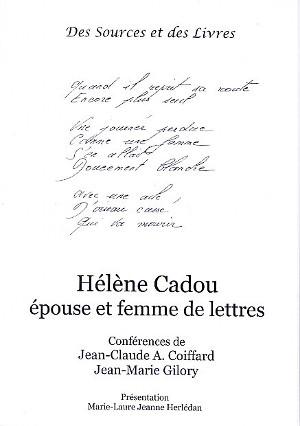 Des Sources et des Livres
Quand il reprit sa route
Encore plus seul
Une journée perdue
Comme une femme
S'en allait
Doucement blanche
avec une aile
D'oiseau
qui va mourir
Hélène Cadou
épouse et femme de lettres
Conférences de
Jean-Claude A. Coiffard
Jean-Marie Gilory
Présentation
Marie-Laure Jeanne Herlédan